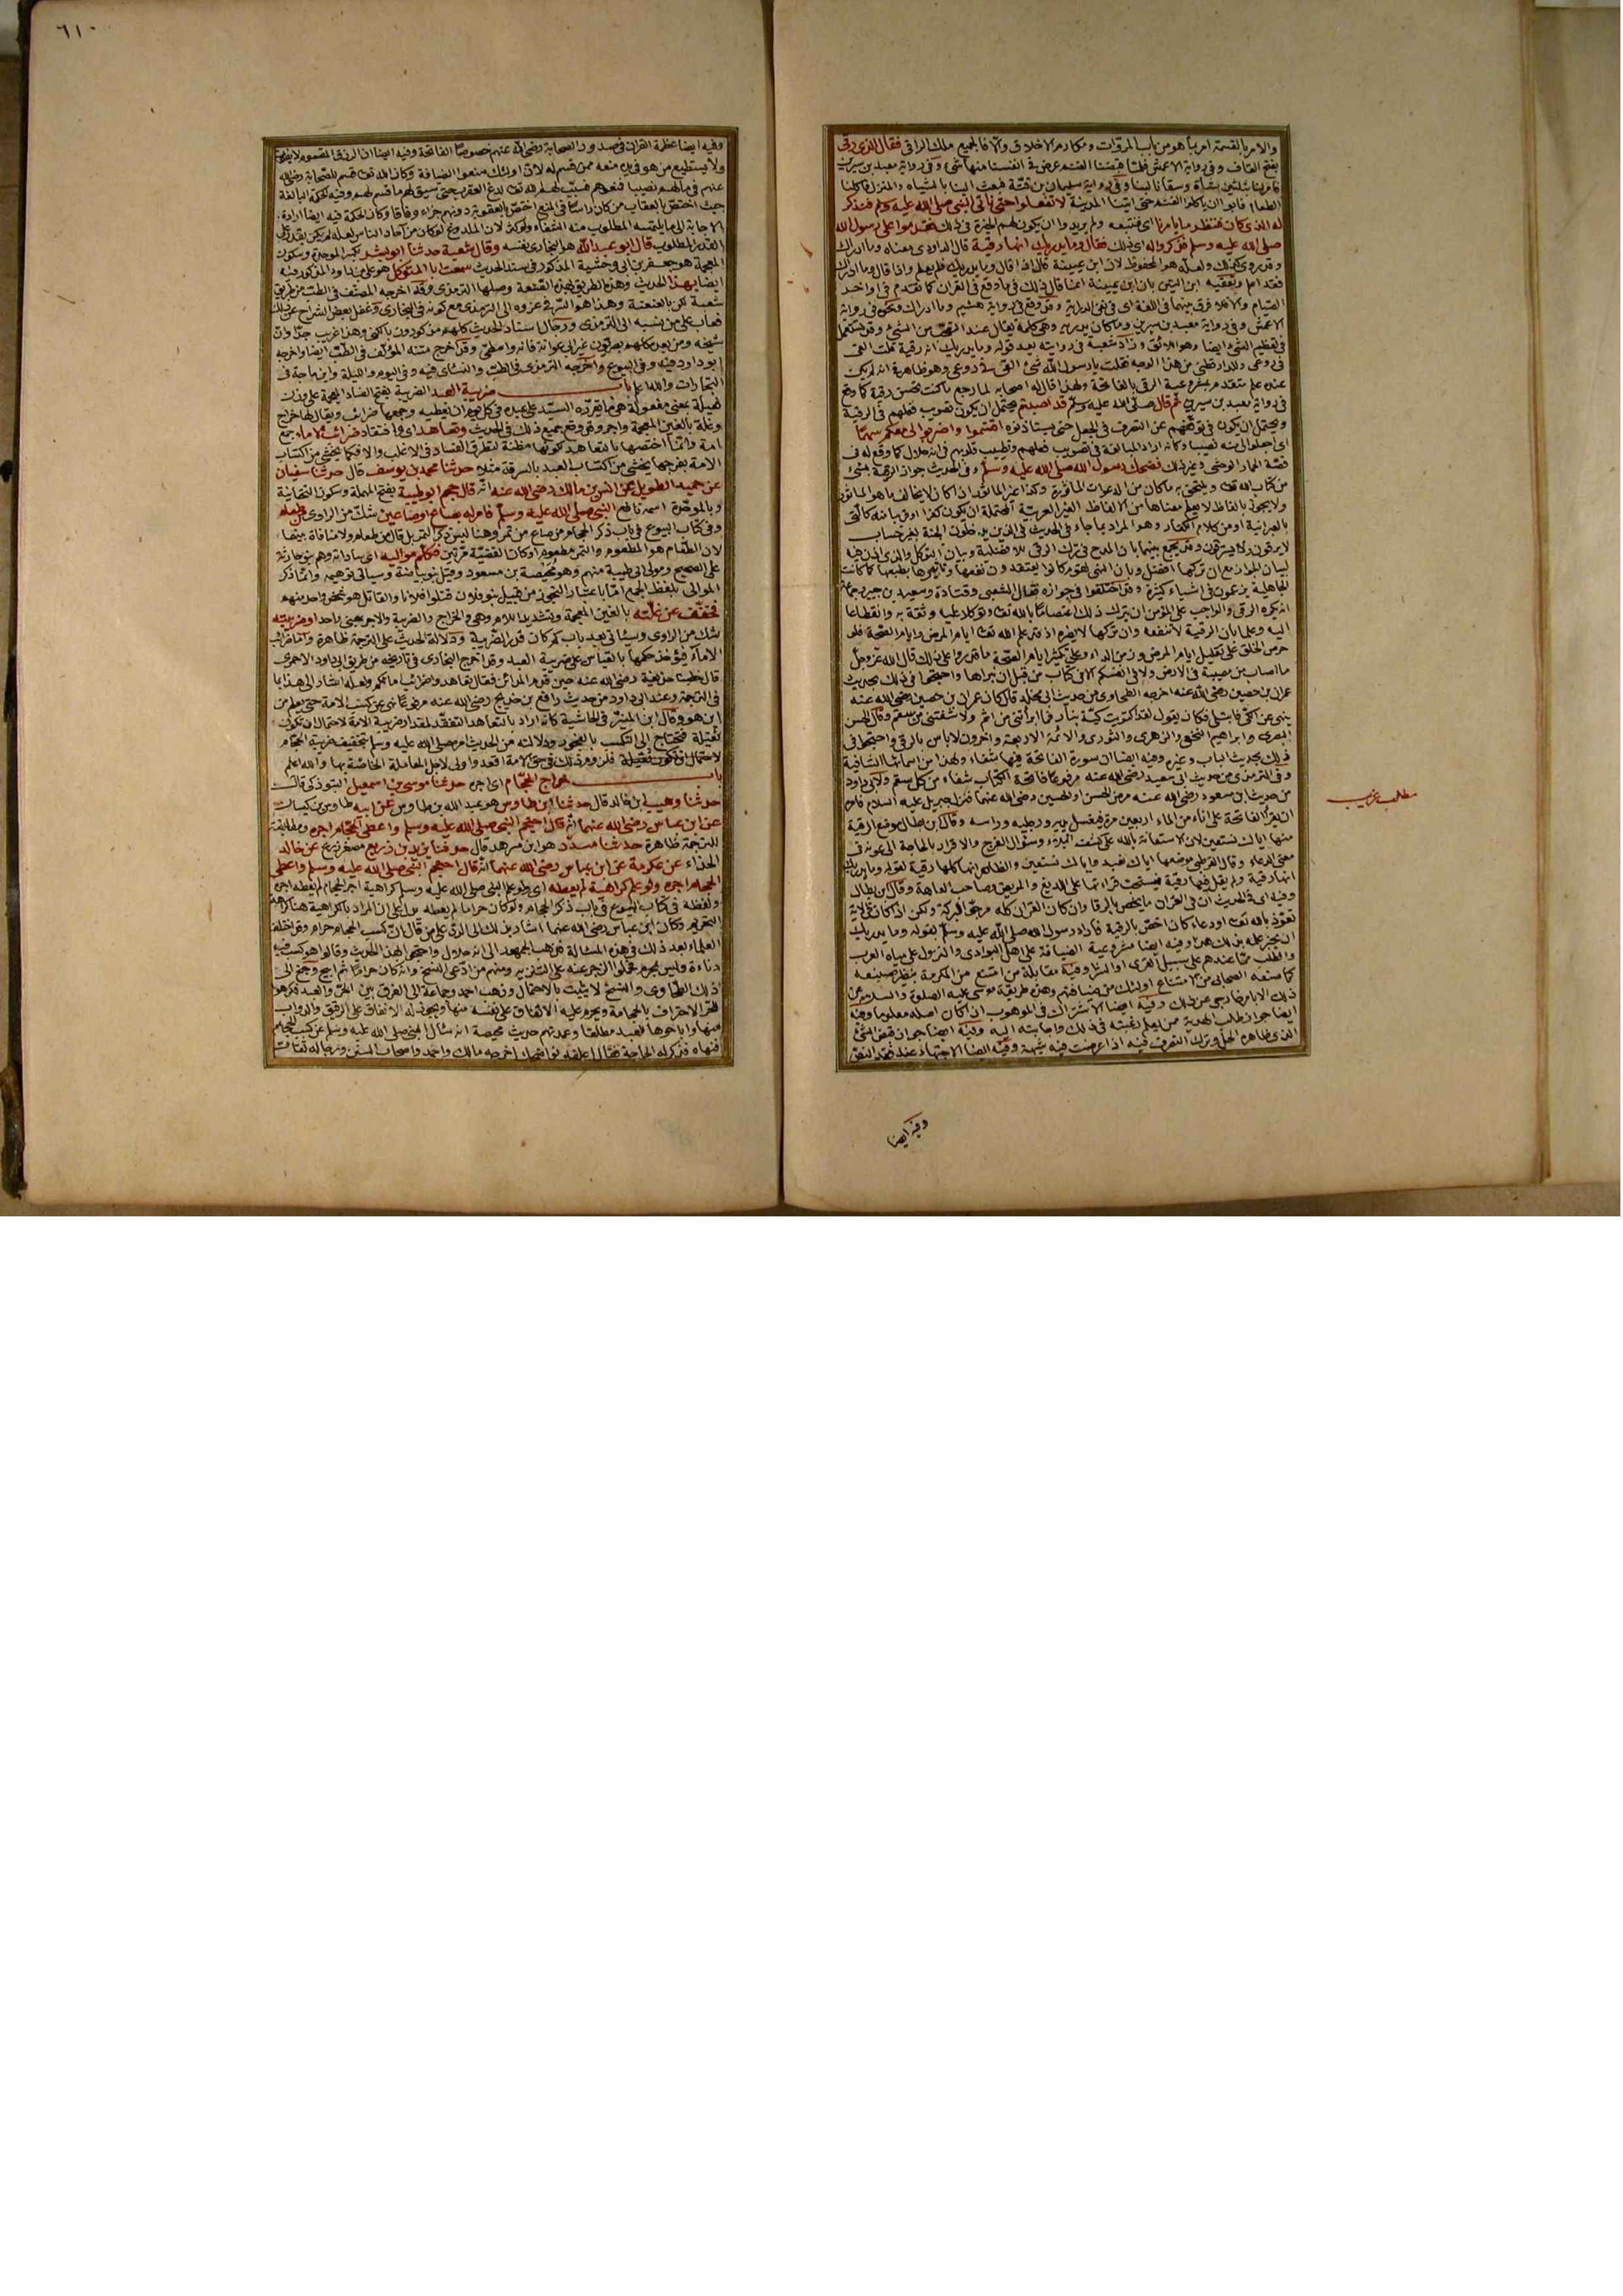 والامر بالقسمة امر بما هو من باب المروآت ومكارم الاخلاق والا فالجميع ملك الراقي فقال الذي رقى
بفتح القاف وفي رواية الاعمش فلما قبضنا الغنم عرض في انفسنا منها شئ وفي رواية معبد بن سيرين
فامر لنا بثلثين شاة وسقانا لبنا وفي رواية سليمان بن قتة فبعث الينا بالشياه والنزل فاكلنا
الطعام فابوا ان ياكلوا الغنم حتى اتينا المدينة لا تفعلوا حتى ناتي النبي صلى الله عليه وسلم فنذكر
له الذي كان فننظر ما يامرنا اي فنتبعه ولم يريدوا ان يكون لهم الخيرة في ذلك فقدموا على رسول الله
صلى الله عليه وسلم فذكروا له اي ذلك فقال وما يدريك انها رقية قال الداودي معناه وما ادراك
وقد روي كذلك ولعله هو المحفوظ لان ابن عيينة قال اذا قال وما يدريك فلم يعلم واذا قال وما ادراك
فقد اعلم وتعقبه ابن التين بان ابن عيينة انما قال ذلك فيما وقع في القران كما تقدم في اواخر
الصيام والا فلا فرق بينهما في اللغة اي في نفي الدراية وقد وقع في رواية هشيم وما ادراك ونحوه في رواية
الاعمش وفي رواية معبد بن سيرين وما كان يدريه وهي كلمة تقال عند التعجب من الشئ وقد تستعمل
في تعظيم الشئ ايضا وهو اللائق وزاد شعبة في روايته بعد قوله وما يدريك انها رقية قلت القي
في روعي وللدارقطني من هذا الوجه فقلت يا رسول الله شئ القي في روعي وهو ظاهر في انه لم يكن
عنده علم متقدم بمشروعية الرقى بالفاتحة ولهذا قال له اصحابه لما رجع ما كنت تحسن رقية كما وقع
في رواية معبد بن سيرين ثم قال صلى الله عليه وسلم قد اصبتم يحتمل ان يكون تصويب فعلهم في الرقية
ويحتمل ان يكون في توقفهم عن التصرف في الجعل حتى يستاذنوه اقتسموا واضربوا لي معكم سهما
اي اجعلوا لي منه نصيبا وكانه اراد المبالغة في تصويب فعلهم وتطييب قلوبهم في انه حلال كما وقع له في
قصة الحمار الوحشي وغير ذلك فضحك رسول الله صلى الله عليه وسلم وفي الحديث جواز الرقية بشئ
من كتاب الله تعالى ويلتحق به ما كان من الدعوات الماثورة وكذا غير الماثور ان كان لا يخالف ما هو الماثور
ولا يجوز بالفاظ لا يعلم معناها من الالفاظ الغير العربية المحتملة ان يكون كفرا
بالعبرانية او من كلام الكفار وهو المراد بما جاء في الحديث في الذين يدخلون الجنة بغير حساب
لا يرقون ولا يسترقون وقد يجمع بينهما بان المدح في ترك الرقى للافضلية وبيان التوكل والذي اذن فيه
لبيان الجواز مع ان تركها افضل وبان النهي لقوم كانوا يعتقدون نفعها وتاثيرها بطبعها كما كانت
الجاهلية يزعمون في اشياء كثيرة وقد اختلفوا في جوازه فقال الشعبي وقتادة وسعيد بن جبير وجماعة
انه يكره الرقى والواجب على المؤمن ان يترك ذلك اعتصاما بالله تعالى وتوكلا عليه وثقة به وانقطاعا
اليه وعلما بان الرقية لا تنفعه وان تركها لا يضره اذ قد علم الله تعالى ايام المرض وايام الصحة فلو
حرص الخلق على تقليل ايام المرض وزمن الداء وعلى تكثير ايام الصحة ما قدروا على ذلك قال الله عز وجل
ما اصاب من مصيبة في الارض ولا في انفسكم الا في كتاب من قبل ان نبراها واحتجوا في ذلك بحديث
عمران بن حصين رضي الله عنه اخرجه الطحاوي من حديث ابي مجلز قال كان عمران بن حصين رضي الله عنه
ينهى عن الكي فابتلي فكان يقول لقد اكتويت كية بنار فما ابراتني من اثم ولا شفتني من سقم وقال الحسن
البصري وابراهيم النخعي والزهري والثوري والائمة الاربعة واخرون لا باس بالرقى واحتجوا في
ذلك بحديث الباب وغيره وفيه ايضا ان سورة الفاتحة فيها شفاء ولهذا من اسمائها الشافية
وفي الترمذي من حديث ابي سعيد رضي الله عنه مرفوعا فاتحة الكتاب شفاء من كل سقم ولابي داود
من حديث ابن مسعود رضي الله عنه مرض الحسن او الحسين رضي الله عنهما فنزل جبريل عليه السلام فامره
ان يقرا الفاتحة على اناء من الماء اربعين مرة فيغسل يديه ورجليه وراسه وقال ابن بطال موضع الرقية
منها اياك نستعين لان الاستعانة بالله على كشف الضر وسؤال الفرج والاقرار بالحاجة الى عونه في
معنى الدعاء وقال القرطبي موضعها اياك نعبد واياك نستعين والظاهر انها كلها رقية لقوله وما يدريك
انها رقية ولم يقل فيها رقية فيستحب قراءتها على اللديغ والمريض وصاحب العاهة وقال ابن بطال
وفيه اي في الحديث ان في القران ما يختص بالرقا وان كان القران كله مرجو البركة ولكن اذا كان في الاية
تعوذ بالله تعالى او دعاء كان اخص بالرقية فاراد رسول الله صلى الله عليه وسلم بقوله وما يدريك
ان يختبر علمه بذلك وفيه ايضا مشروعية الضيافة على اهل البوادي والنزول على مياه العرب
والطلب مما عندهم على سبيل القرى او الشرا وفيه مقابلة من امتنع من المكرمة بنظير صنيعه
كما صنعه الصحابي من الامتناع اولئك من ضيافتهم وهذه طريقة موسى عليه الصلوة والسلام
ذلك الا بامر خارجي عن ذلك وفيه ايضا الاشتراك في الموهوب ان كان اصله معلوما وفيه
ايضا جواز طلب الهدية ممن يعلم رغبته في ذلك واجابته اليه وفيه ايضا جواز قبض الشئ
الذي ظاهره الحل وترك التصرف فيه اذا عرضت فيه شبهة وفيه ايضا الاجتهاد عند فقد النص
وفيه ايضا
مطلب غريب
٦١٠
وفيه ايضا عظمة القران في صدور الصحابة رضي الله عنهم خصوصا الفاتحة وفيه ايضا ان الرزق المقسوم لا يفوت
ولا يستطيع من هو في يده منعه ممن قسم له لان اولئك منعوا الضيافة وكان الله تعالى قسم للصحابة رضي الله
عنهم في مالهم نصيبا فمنعوهم فسبب لهم الله تعالى لدغ العقرب حتى سيق لهم ما قسم لهم وفيه الحكمة البالغة
حيث اختص بالعقاب من كان راسا في المنع اختص بالعقوبة دونهم جزاء وفاقا وكان الحكمة فيه ايضا ارادة
الاجابة الى ما يلتمسه المطلوب منه الشفاء ولو كثر لان الملدوغ لو كان من احاد الناس لعله لم يكن يقدر على
القدر المطلوب قال ابو عبد الله هو البخاري نفسه وقال شعبة حدثنا ابو بشر بكسر الموحدة وسكون
المعجمة هو جعفر بن ابي وحشية المذكور في سند الحديث سمعت ابا المتوكل هو علي بن داود المذكور فيه
ايضا بهذا الحديث وهذه الطريق بهذه الصيغة وصلها الترمذي وقد اخرجه المصنف في الطب من طريق
شعبة لكن بالعنعنة وهذا هو السر في عزوه الى الترمذي مع كونه في البخاري وغفل بعض الشراح عن ذلك
فعاب على من نسبه الى الترمذي ورجال اسناد الحديث كلهم مذكورون بالكنى وهذا غريب جدا وان
شيخه ومن بعده كلهم بصريون غير ابي عوانة فانه واسطي وقد اخرج متنه المؤلف في الطب ايضا واخرجه
ابو داود فيه وفي البيوع واخرجه الترمذي في الطب والنسائي فيه وفي اليوم والليلة وابن ماجة في
التجارات والله اعلم باب ضريبة العبد الضريبة بفتح الضاد المعجمة على وزن
فعيلة بمعنى مفعولة هي ما يقرره السيد على عبده في كل يوم ان يعطيه وجمعها ضرائب ويقال لها خراج
وغلة بالغين المعجمة واجر وقد وقع جميع ذلك في الحديث وتعاهد اي وافتقاد ضرائب الاماء جمع
امة وانما اختصها بالتعاهد لكونها مظنة لتطرق الفساد في الاغلب والا فكما يخشى من اكتساب
الامة بفرجها يخشى من اكتساب العبد بالسرقة مثلا حدثنا محمد بن يوسف قال حدثنا سفيان
عن حميد الطويل عن انس بن مالك رضي الله عنه انه قال حجم ابو طيبة بفتح المهملة وسكون التحتانية
وبالموحدة اسمه نافع النبي صلى الله عليه وسلم فامر له بصاع او صاعين شك من الراوي من طعام
وفي كتاب البيوع في باب ذكر الحجام من صاع من تمر وهنا ليس ذكر التمر بل قال من طعام ولا منافاة بينهما
لان الطعام هو المطعوم والتمر مطعوم او كان القضية مرتين فكلم مواليه اي ساداته وهم بنو حارثة
على الصحيح ومولى ابي طيبة منهم وهو محيصة بن مسعود وقيل بنو بياضة وسياتي توهيمه وانما ذكر
الموالي بلفظ الجمع اما باعتبار التجوز من قبيل بنو فلان قتلوا فلانا والقاتل هو شخص واحد منهم
فخفف عن غلته بالغين المعجمة وتشديد اللام وهي والخراج والضريبة والاجر بمعنى واحد او ضريبته
شك من الراوي وسياتي بعد باب كم كان قدر الضريبة ودلالة الحديث على الترجمة ظاهرة واما ضرائب
الاماء فيؤخذ حكمها بالقياس على ضريبة العبد وقد اخرج البخاري في تاريخه من طريق ابي داود الاحمري
قال خطبنا حذيفة رضي الله عنه حين قدم المدائن فقال تعاهدوا ضرائب امائكم ولعله اشار الى هذا بما
في الترجمة وعند ابي داود من حديث رافع بن خديج رضي الله عنه مرفوعا نهى عن كسب الامة حتى يعلم من
اين هو وقال ابن المنير في الحاشية كانه اراد بالتعاهد التفقد لمقدار ضريبة الامة لاحتمال ان تكون
ثقيلة فتحتاج الى التكسب بالفجور ودلالته من الحديث امره صلى الله عليه وسلم بتخفيف ضريبة الحجام
لاحتمال ان تكون ثقيلة فلزوم ذلك في حق الامة اقعد واولى لاجل الحاملة الخاصة بها والله اعلم
باب خراج الحجام اي اجره حدثنا موسى بن اسمعيل التبوذكي قال
حدثنا وهيب ابن خالد قال حدثنا ابن طاوس هو عبد الله بن طاوس عن ابيه طاوس بن كيسان
عن ابن عباس رضي الله عنهما انه قال احتجم النبي صلى الله عليه وسلم واعطى الحجام اجره ومطابقته
للترجمة ظاهرة حدثنا مسدد هو ابن مسرهد قال حدثنا يزيد بن زريع مصغر زرع عن خالد
الحذاء عن عكرمة عن ابن عباس رضي الله عنهما انه قال احتجم النبي صلى الله عليه وسلم واعطى
الحجام اجره ولو علم كراهية لم يعطه اي ولو علم النبي صلى الله عليه وسلم كراهية اجر الحجام لم يعطه اجره
ولفظه في كتاب البيوع في باب ذكر الحجام ولو كان حراما لم يعطه يدل على ان المراد بالكراهية هنا كراهة
التحريم وكان ابن عباس رضي الله عنهما اشار بذلك الى الرد على من قال ان كسب الحجام حرام وقد اختلف
العلماء بعد ذلك في هذه المسئالة فذهب الجمهور الى انه حلال واحتجوا بهذا الحديث وقالوا هو كسب فيه
دناءة وليس بمحرم فحملوا الزجر عنه على التنزيه ومنهم من ادعى النسخ وانه كان حراما ثم ابيح وجنح الى
ذلك الطحاوي والنسخ لا يثبت بالاحتمال وذهب احمد وجماعة الى الفرق بين الحر والعبد فكرهوا
للحر الاحتراف بالحجامة ويحرم عليه الانفاق على نفسه منها ويجوز له الانفاق على الرقيق والدواب
منها واباحوها للعبد مطلقا وعمدتهم حديث محيصة انه سال النبي صلى الله عليه وسلم عن كسب الحجام
فنهاه فذكر له الحاجة فقال اعلفه نواضحك اخرجه مالك واحمد واصحاب السنن ورجاله ثقات